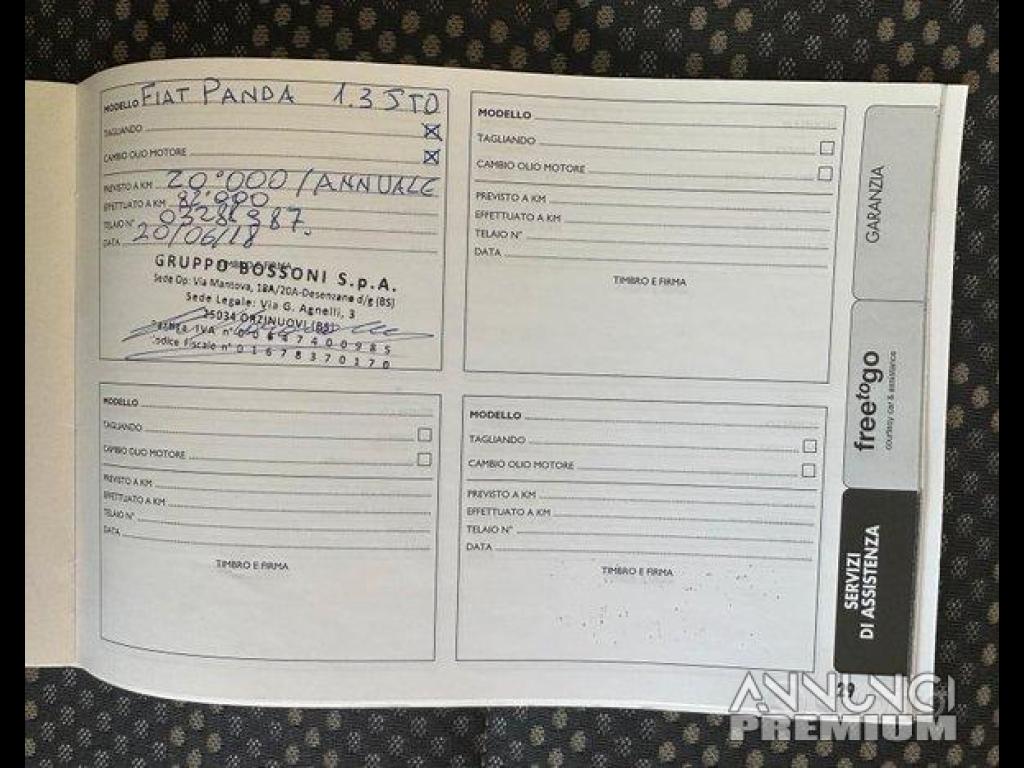 MODELLO FIAT PANDA 1.3 STD
TAGLIANDO
CAMBIO OLIO MOTORE
PREVISTO A KM 20°000 / ANNUALE
EFFETTUATO A KM 82°000
TELAIO N°
DATA 20/06/18
TIMBRO E FIRMA
GRUPPO BOSSONI S.p.A.
Sede Op: Via Mantova, 18A/20A-Desenzano d/g (BS)
Sede Legale: Via G. Agnelli, 3
25034 ORZINUOVI (BS)
Partita IVA n° 00647400985
Codice Fiscale n° 01678370170
MODELLO
TAGLIANDO
CAMBIO OLIO MOTORE
PREVISTO A KM
EFFETTUATO A KM
TELAIO N°
DATA
TIMBRO E FIRMA
MODELLO
TAGLIANDO
CAMBIO OLIO MOTORE
PREVISTO A KM
EFFETTUATO A KM
TELAIO N°
DATA
TIMBRO E FIRMA
MODELLO
TAGLIANDO
CAMBIO OLIO MOTORE
PREVISTO A KM
EFFETTUATO A KM
TELAIO N°
DATA
TIMBRO E FIRMA
GARANZIA
freetogo
courtesy car & assistance
SERVIZI
DI ASSISTENZA
29
ANNUNCI
PREMIUM